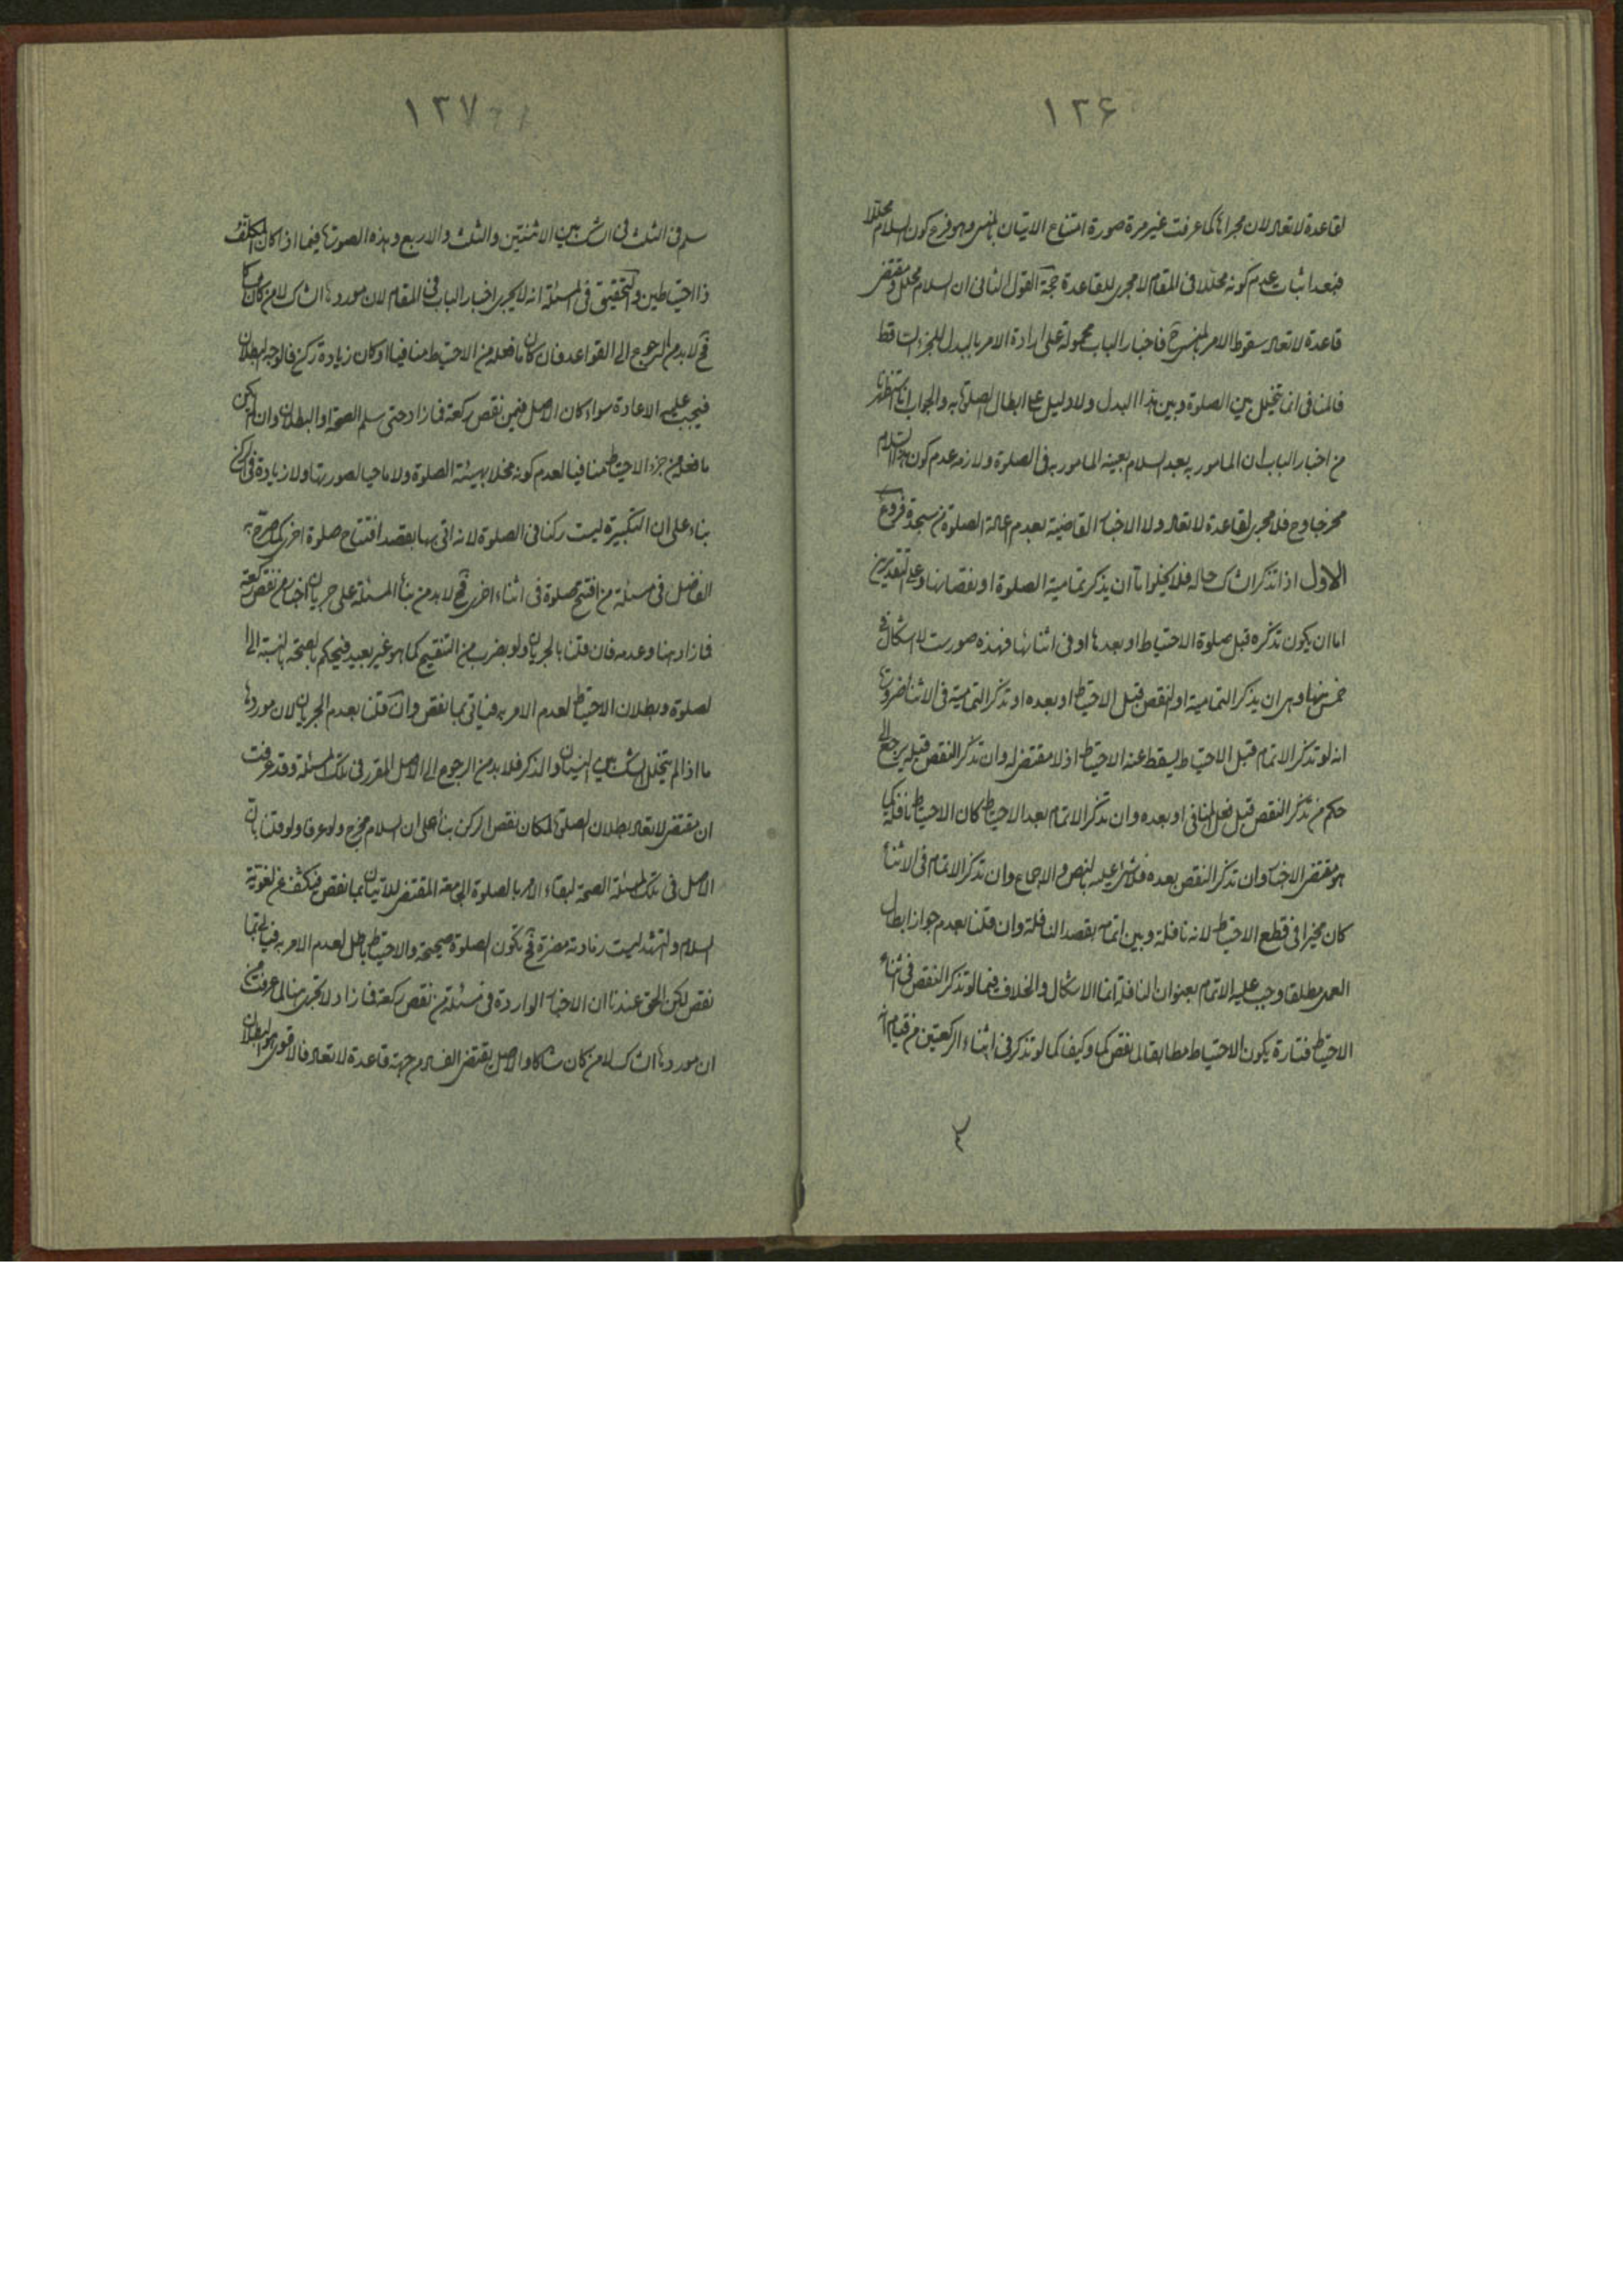 ١٢۶
لقاعدة لا تعاد لان مجراها كما عرفت غير مرة صورة امتناع الاتيان بالمنسى وهو فرع كون السلام محللا
فبعد اثبات عدم كونه محللا فى المقام لا مجرى للقاعدة حجة القول الثانى ان السلام محلل ومقتضى
قاعدة لا تعاد سقوط الامر بالمنسى فاخبار الباب محمولة على ارادة الامر بالبدل للجزء الساقط
فالمنافى انما تخلل بين الصلوة وبين هذا البدل ولا دليل على ابطال الصلوة به والجواب انا استظهرنا
من اخبار الباب ان المامور به بعد السلام بعينه المامور به فى الصلوة ولازمه عدم كون هذا السلام
مخرجا وح فلا مجرى لقاعدة لا تعاد ولا الاخبار القاضية بعدم اعادة الصلوة من سجدة فروع
الاول اذا تذكر الشاك حاله فلا يخلوا اما ان يذكر تمامية الصلوة او نقصانها وعلى التقديرين
اما ان يكون تذكره قبل صلوة الاحتياط او بعدها او فى اثنائها فهذه صور ست لا اشكال فى
خمس منها وهى ان يذكر التمامية او النقص قبل الاحتياط او بعده او تذكر التمامية فى الاثناء ضرورة
انه لو تذكر الاتمام قبل الاحتياط يسقط عنه الاحتياط اذ لا مقتضى له وان تذكر النقص قبله يرجع الى
حكم من تذكر النقص قبل فعل المنافى او بعده وان تذكر الاتمام بعد الاحتياط كان الاحتياط نافلة كما
هو مقتضى الاخبار وان تذكر النقص بعده فلا شئ عليه بالنص والاجماع وان تذكر الاتمام فى الاثناء
كان مخيرا فى قطع الاحتياط لانه نافلة وبين اتمامه بقصد النافلة وان قلنا بعدم جواز ابطال
العمل مطلقا وجب عليه الاتمام بعنوان النافلة انما الاشكال والخلاف فيما لو تذكر النقص فى اثناء
الاحتياط فتارة يكون الاحتياط مطابقا لما نقص كما وكيفا كما لو تذكر فى اثناء الركعتين من قيام انه
١٢٧
سلم فى الثلث فى الشك بين الاثنتين والثلث والاربع وهذه الصورة فيما اذا كان المكلف
ذا احتياطين والتحقيق فى المسئلة انه لا يجرى اخبار الباب فى المقام لان موردها الشاك لا من كان شاكا
فح لا بد من الرجوع الى القواعد فان كان ما فعله من الاحتياط منافيا او كان زيادة ركن فالوجه البطلان
فيجب عليه الاعادة سواء كان الاصل فيمن نقص ركعة فما زاد حتى سلم الصحة او البطلان وان لم يكن
ما فعله من جزء الاحتياط منافيا لعدم كونه مخلا بهيئة الصلوة ولا ماحيا لصورتها ولا زيادة فى الركن
بناء على ان التكبيرة ليست ركنا فى الصلوة لانه اتى بها بقصد افتتاح صلوة اخرى كما صرح به
الفاضل فى مسئلة من افتتح صلوة فى اثناء اخرى فح لا بد من بناء المسئلة على جريان اخبار من نقص ركعة
فما زاد هنا وعدمه فان قلنا بالجريان ولو بضرب من التنقيح كما هو غير بعيد فيحكم بالصحة بالنسبة الى ا
لصلوة وبطلان الاحتياط لعدم الامر به فياتى بما نقص وان قلنا بعدم الجريان لان موردها
ما اذا لم يتخلل الشك بين النسيان والذكر فلا بد من الرجوع الى الاصل المقرر فى تلك المسئلة وقد عرفت
ان مقتضى لا تعاد بطلان الصلوة لمكان نقص الركن بناء على ان السلام مخرج ولو عرفا ولو قلنا بان
الاصل فى تلك المسئلة الصحة لبقاء الامر بالصلوة الجامعة المقتضى للاتيان بما نقص فيكشف عن لغوية
السلام والتشهد ليست زيادته مضرة فح تكون الصلوة صحيحة والاحتياط باطل لعدم الامر به فياتى بما
نقص لكن الحق عندنا ان الاخبار الواردة فى مسئلة من نقص ركعة فما زاد لا تجرى هنا لما عرفت من
ان موردها الشاك لا من كان شاكا والاصل يقتضى الفساد من جهة قاعدة لا تعاد فالاقوى هو البطلان